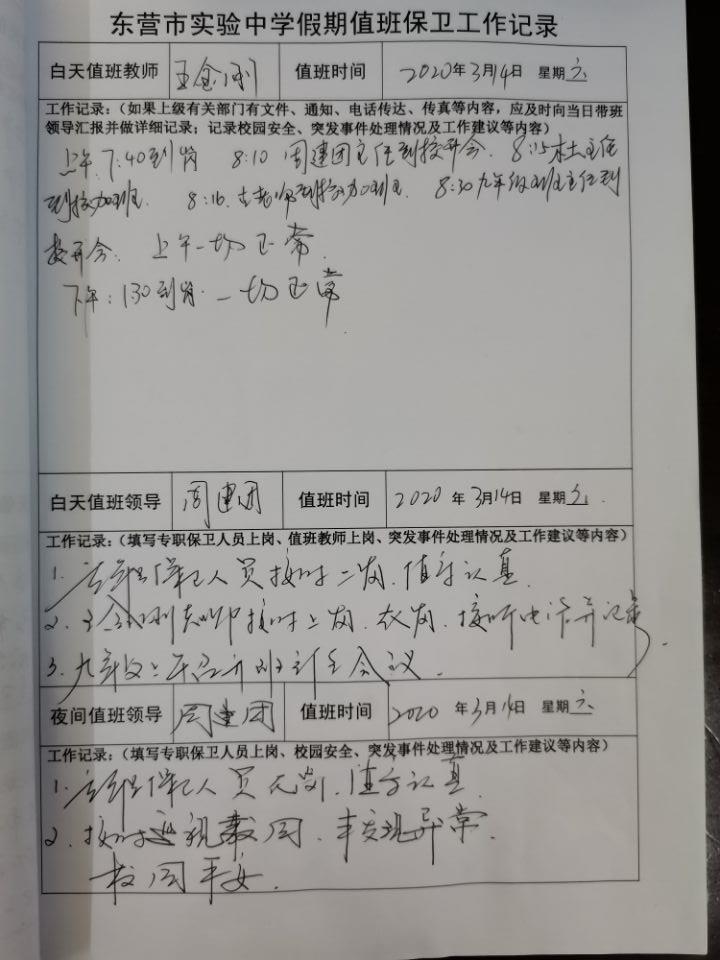 东营市实验中学假期值班保卫工作记录
白天值班教师 王金刚 值班时间 2020年3月14日 星期六
工作记录:(如果上级有关部门有文件、通知、电话传达、传真等内容，应及时向当日带班
领导汇报并做详细记录；记录校园安全、突发事件处理情况及工作建议等内容)
上午7:40到岗 8:10 周建团主任到校开会. 8:15杜主任
到校加班. 8:16. 老师到校加班. 8:30九年级班主任到
校开会. 上午一切正常.
下午:130到岗. 一切正常
白天值班领导 周建团 值班时间 2020 年 3月14日 星期六.
工作记录:(填写专职保卫人员上岗、值班教师上岗、突发事件处理情况及工作建议等内容)
1. 保卫人员按时上岗、值守认真.
2. 王金刚老师按时上岗、接听电话并记录.
3. 九年级上午召开班主任会议.
夜间值班领导 周建团 值班时间 2020 年 3月14日 星期六
工作记录:(填写专职保卫人员上岗、校园安全、突发事件处理情况及工作建议等内容)
1. 保卫人员在岗、值守认真.
2. 按时巡视校园、未发现异常.
校园平安.